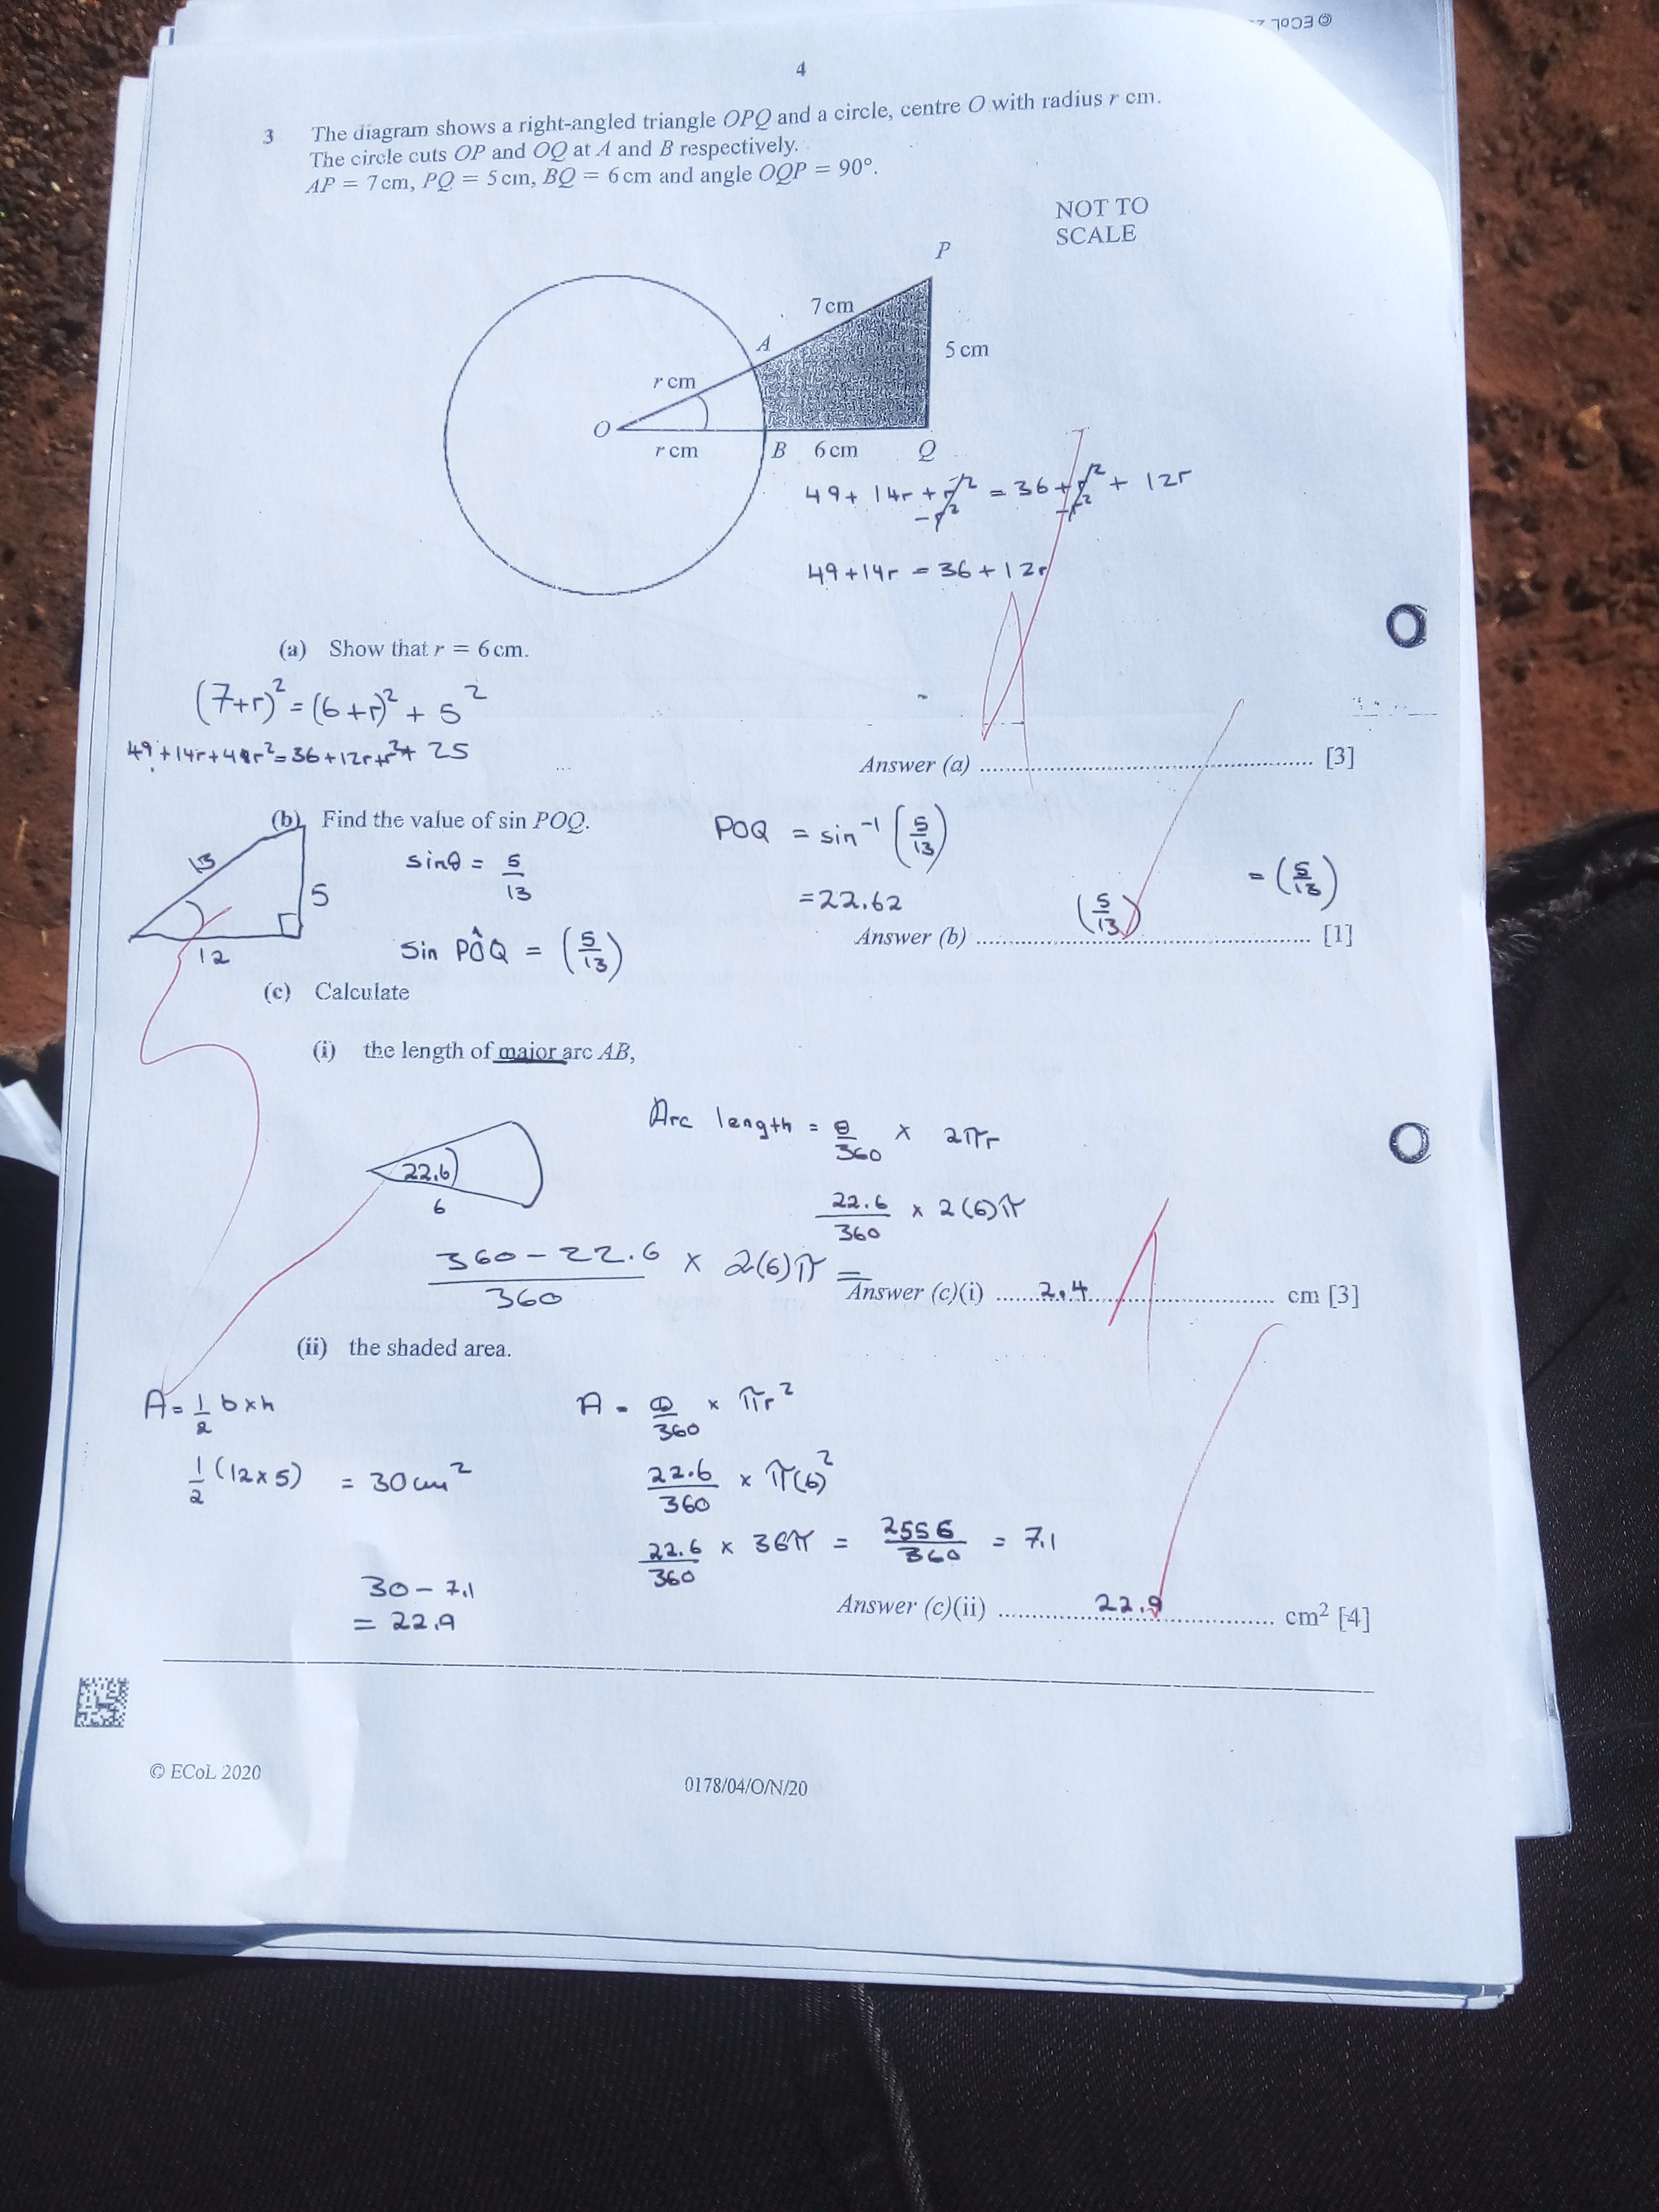 © ECOL
4
3 The diagram shows a right-angled triangle OPQ and a circle, centre O with radius r cm.
The circle cuts OP and OQ at A and B respectively.
AP = 7 cm, PQ = 5 cm, BQ = 6 cm and angle OQP = 90°.
NOT TO
SCALE
P
7 cm
A
5 cm
r cm
O
r cm
B
6 cm
Q
49 + 14r + r² = 36 + r² + 12r
-r² -r²
49 + 14r = 36 + 12r
(a) Show that r = 6 cm.
(7+r)² = (6+r)² + 5²
49 + 14r + r² = 36 + 12r + r² + 25
Answer (a) [3]
(b) Find the value of sin POQ.
13
5
12
sinθ = 5/13
sin PÔQ = (5/13)
POQ = sin⁻¹ (5/13)
= 22.62
= (5/13)
Answer (b) (5/13) [1]
(c) Calculate
(i) the length of major arc AB,
22.6
6
Arc length = θ/360 × 2πr
22.6/360 × 2(6)π
360 - 22.6/360 × 2(6)π =
Answer (c)(i) 2.4 cm [3]
(ii) the shaded area.
A = 1/2 b×h
1/2 (12×5) = 30 cm²
A = θ/360 × πr²
22.6/360 × π(6)²
22.6/360 × 36π = 2556/360 = 7.1
30 - 7.1
= 22.9
Answer (c)(ii) 22.9 cm² [4]
© ECoL 2020
0178/04/O/N/20